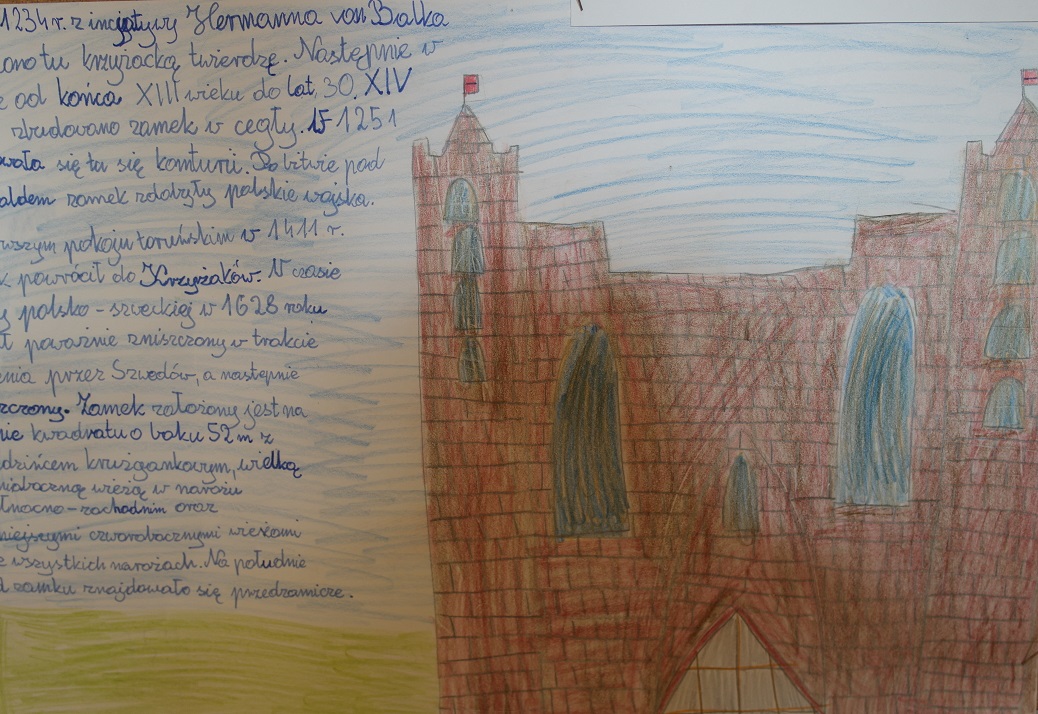 1234 r. z incjatywy Hermanna von Balka
ono tu krzyżacką twierdzę. Następnie w
e od końca XIII wieku do lat 30. XIV
zbudowano zamek w cegły. W 1251
wała się tu się komturii. Po bitwie pod
aldem zamek zdobyły polskie wojska.
wszym pokoju toruńskim w 1411 r.
k powrócił do Krzyżaków. W czasie
y polsko-szwedzkiej w 1628 roku
ł poważnie zniszczony w trakcie
enia przez Szwedów, a następnie
zczony. Zamek założony jest na
nie kwadratu o boku 52m z
dzińcem krużgankowym, wielką
mioboczną wieżą w narożu
łnocno-zachodnim oraz
niejszymi czworobocznymi wieżami
z wszystkich narożach. Na południe
d zamku znajdowało się przedzamcze.